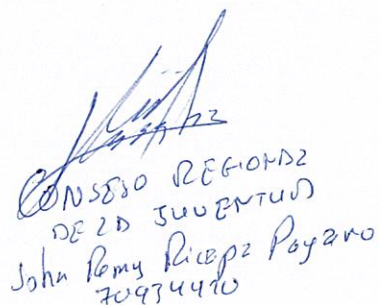 CONSEJO REGIONAL
DE LA JUVENTUD
John Remy Ricapa Poyaro
70434420